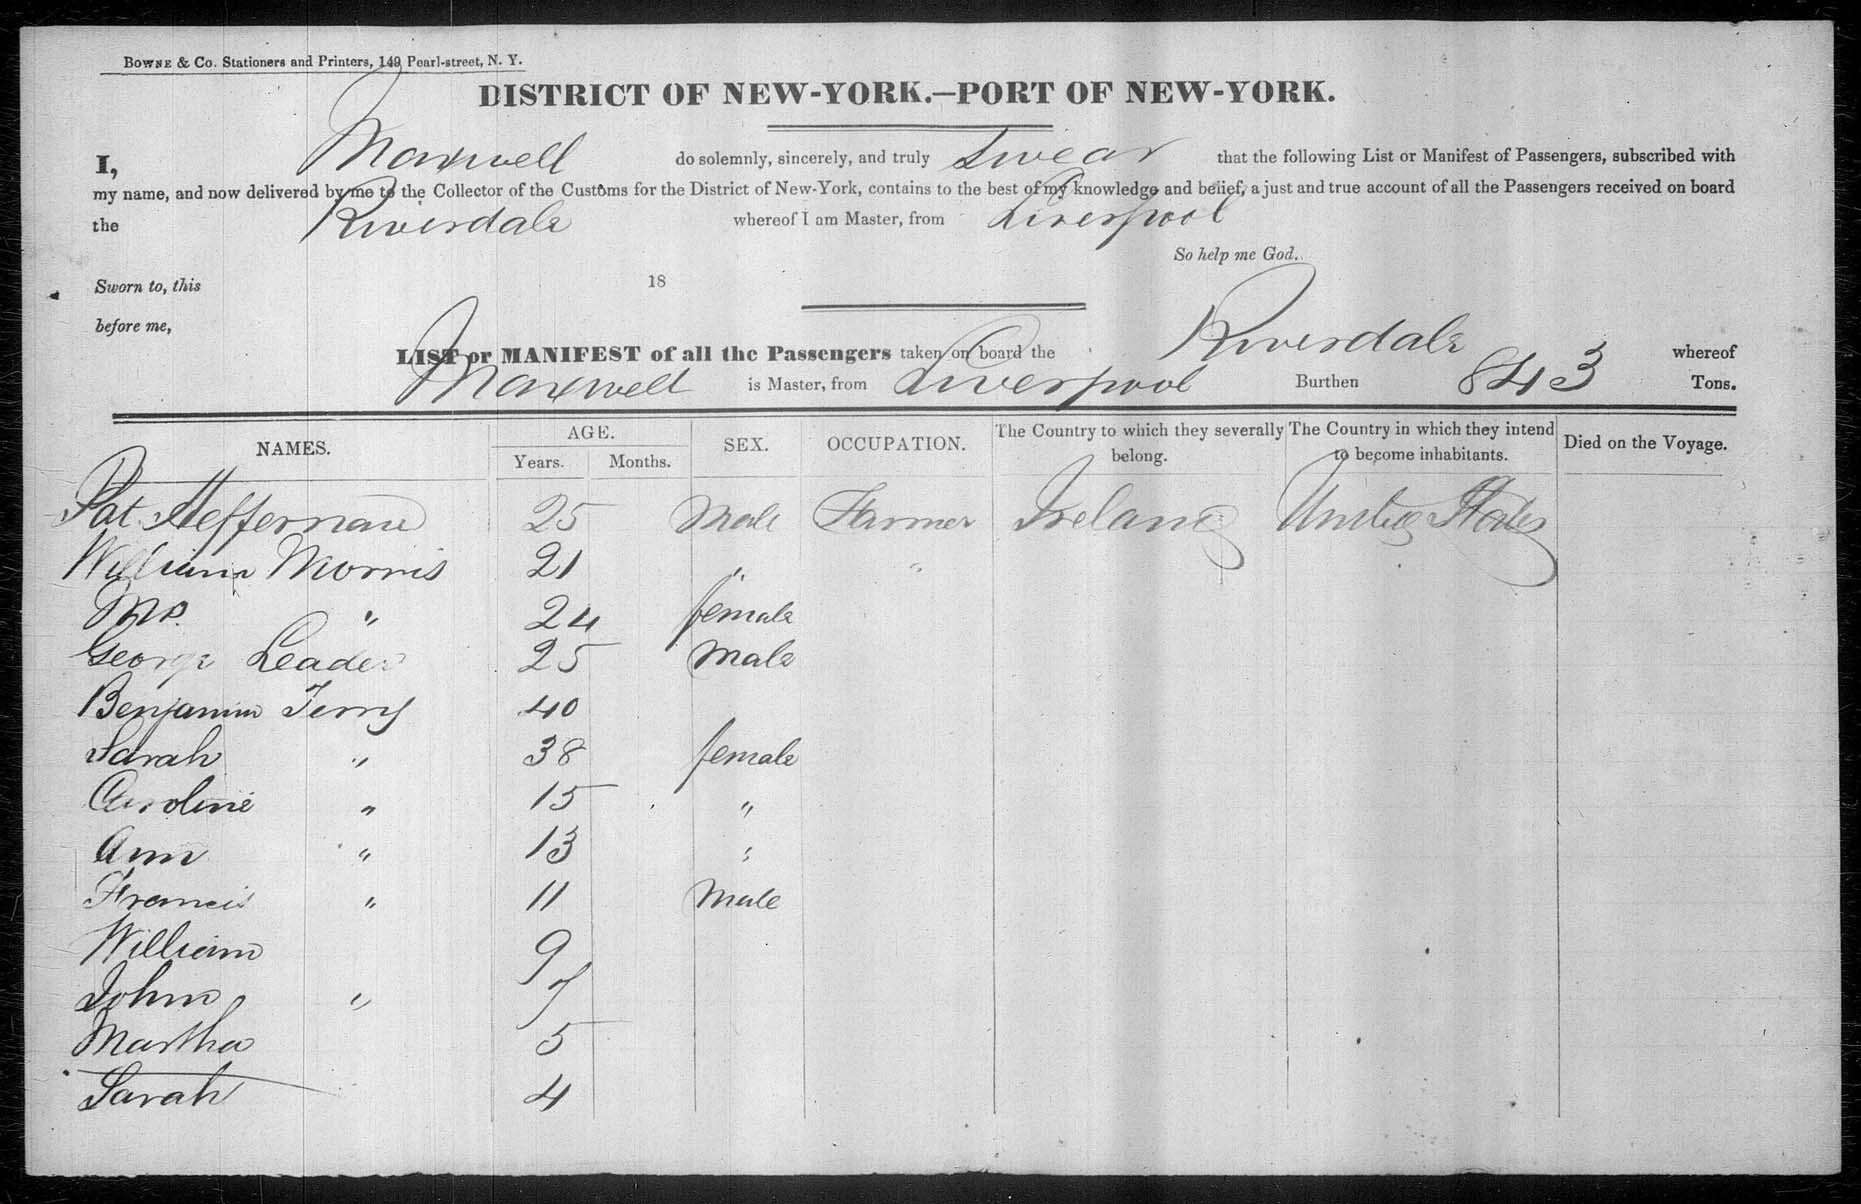 BOWNE & Co. Stationers and Printers, 149 Pearl-street, N. Y.
DISTRICT OF NEW-YORK.—PORT OF NEW-YORK.
I, Maxwell do solemnly, sincerely, and truly swear that the following List or Manifest of Passengers, subscribed with
my name, and now delivered by me to the Collector of the Customs for the District of New-York, contains to the best of my knowledge and belief, a just and true account of all the Passengers received on board
the Riverdale whereof I am Master, from Liverpool
So help me God.
Sworn to, this 18
before me,
LIST or MANIFEST of all the Passengers taken on board the Riverdale whereof
Maxwell is Master, from Liverpool Burthen 843 Tons.
NAMES. AGE. Years. Months. SEX. OCCUPATION. The Country to which they severally belong. The Country in which they intend to become inhabitants. Died on the Voyage.
Pat Heffernan 25 Male Farmer Ireland United States
William Morris 21 " "
Mrs. " 24 female
George Leader 25 Male
Benjamin Terry 40
Sarah " 38 female
Caroline " 15 "
Ann " 13 "
Francis " 11 Male
William 9
John " 7
Martha 5
Sarah 4